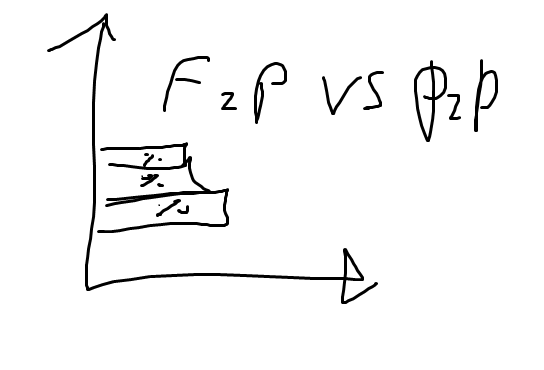 F2P vs P2P
%
%
%